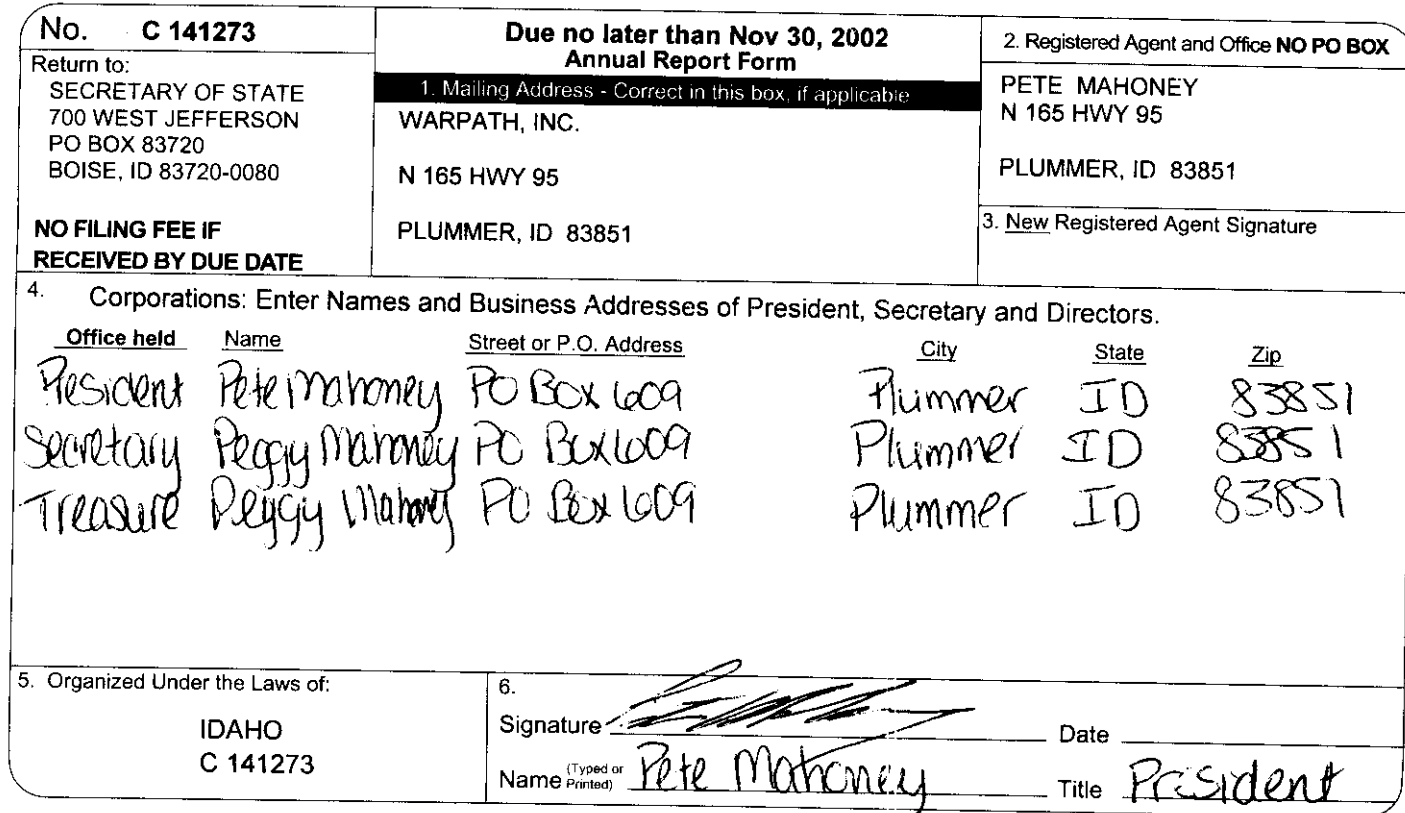 No. C 141273
Return to:
SECRETARY OF STATE
700 WEST JEFFERSON
PO BOX 83720
BOISE, ID 83720-0080
NO FILING FEE IF
RECEIVED BY DUE DATE
Due no later than Nov 30, 2002
Annual Report Form
1. Mailing Address - Correct in this box, if applicable
WARPATH, INC.
N 165 HWY 95
PLUMMER, ID 83851
2. Registered Agent and Office NO PO BOX
PETE MAHONEY
N 165 HWY 95
PLUMMER, ID 83851
3. New Registered Agent Signature
4. Corporations: Enter Names and Business Addresses of President, Secretary and Directors.
Office held Name Street or P.O. Address City State Zip
President Pete Mahoney PO Box 609 Plummer ID 83851
Secretary Peggy Mahoney PO Box 609 Plummer ID 83851
Treasure Peggy Mahoney PO Box 609 Plummer ID 83851
5. Organized Under the Laws of:
IDAHO
C 141273
6.
Signature Date
Name (Typed or Printed) Pete Mahoney Title President